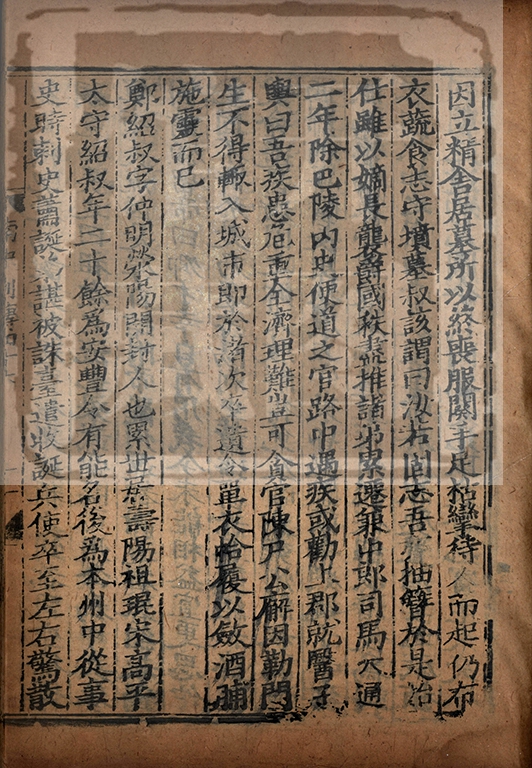 因立精舍居墓所以終喪服闋手足枯攣待人而起仍布
衣蔬食志守墳墓叔該謂曰汝若固志吾亦抽簪於是始
仕雖以嫡長襲爵國秩盡推諸弟累遷兼中郎司馬大通
二年除巴陵內史便道之官路中遇疾或勸上郡就醫子
輿曰吾疾患危重全濟理難豈可貪官陳尸公廨因勒門
生不得輒入城市即於渚次卒遺令單衣帢履以斂酒脯
施靈而已
鄭紹叔字仲明滎陽開封人也累世居壽陽祖琨宋高平
太守紹叔年二十餘為安豐令有能名後為本州中從事
史時刺史蕭誕弟諶被誅臺遣收誕兵使卒至左右驚散